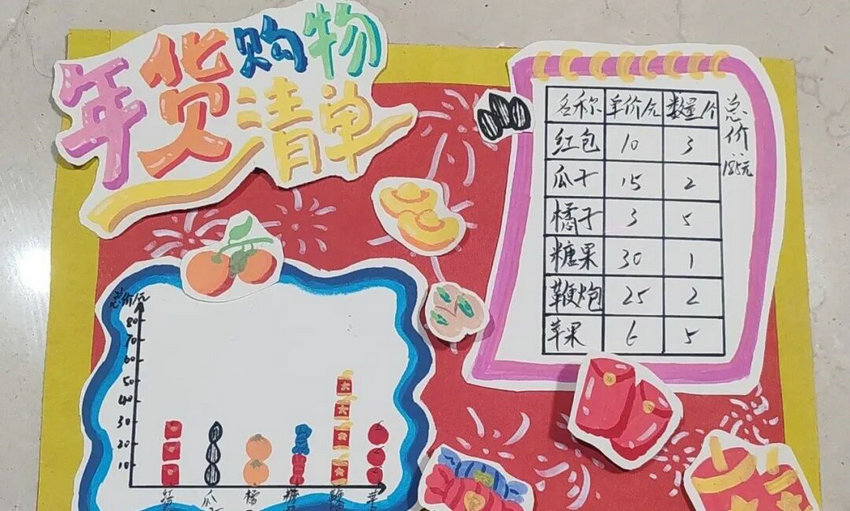 年货购物
清单
名称 单价/元 数量/个
红包 10 3
瓜子 15 2
橘子 3 5
糖果 30 1
鞭炮 25 2
苹果 6 5
总价:185元
总价/元
80
70
60
50
40
30
20
10
红 瓜 橘 糖 鞭 苹